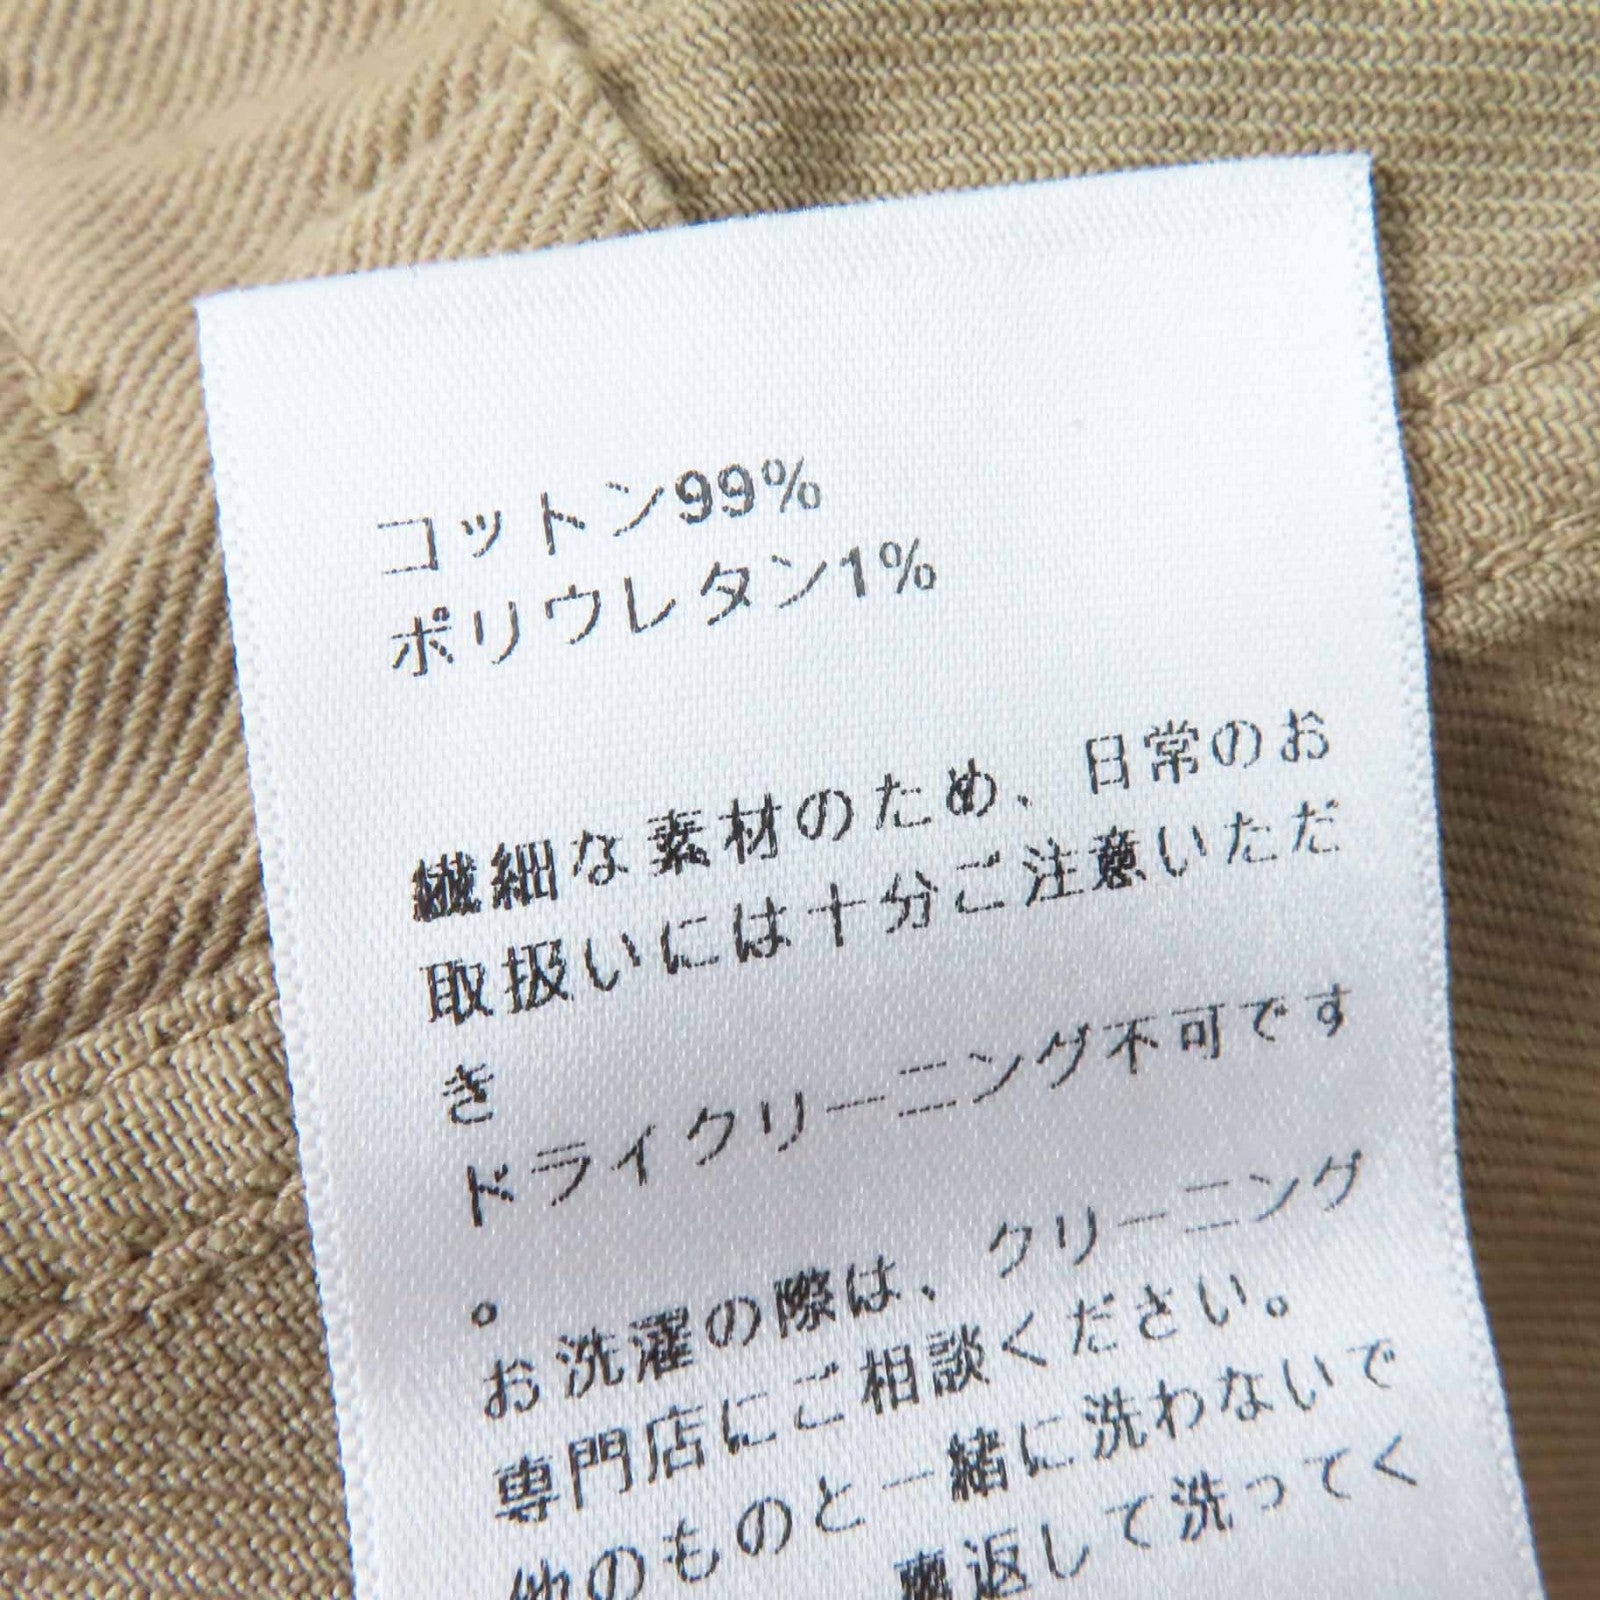 コットン99%
ポリウレタン1%
繊細な素材のため、日常のお
取扱いには十分ご注意いただ
き
ドライクリーニング不可です
。
お洗濯の際は、クリーニング
専門店にご相談ください。
他のものと一緒に洗わないで
裏返して洗ってく